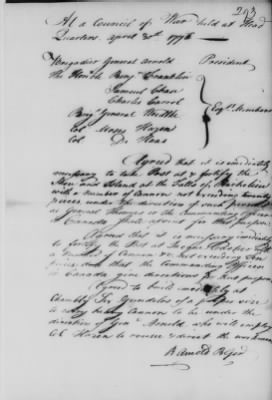 293
At a Council of War held at Head
Quarters, April 30th 1776
Brigadier General Arnold President
The Honble Benj Franklin
Samuel Chase
Charles Carrol
Esqrs Members
General
Col Moses Hazen
Col De Haas
Agreed that it is immediately
necessary to take Post at & fortify the
and Island at the Falls of Richelieu
with a number of Cannon not exceeding twenty
pieces, under the direction of such person
as General Thomas or the Commanding Officer
in Canada shall for that purpose
Agreed that it is necessary immediately
to fortify the Post at Jacques Cartier with
a number of Cannon not exceeding
and that the Commanding Officer
in Canada give directions for that purpose
Agreed to build immediately at
Chambly Gondolas of a proper size
to carry heavy Cannon to be under the
direction of Genl Arnold, who will employ
Col Hazen to & direct the workmen
B Arnold